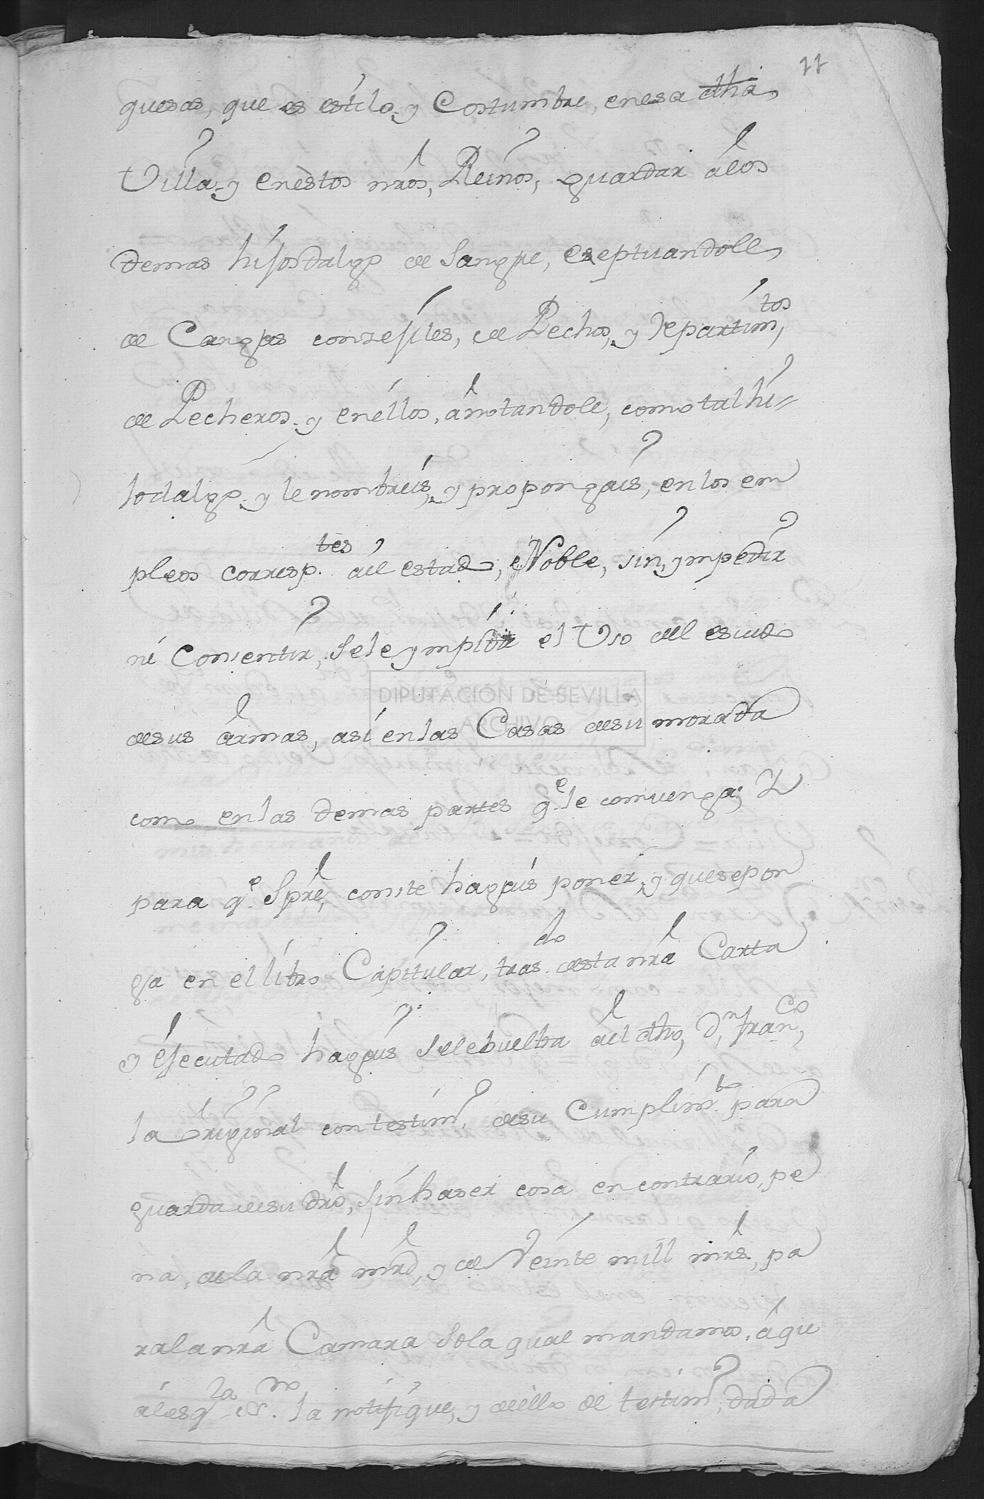 11
quesas, que es estilo y Costumbre, enesa dha
Villa, y enestos nrōs, Reinos, guardar álos
demas hijosdalgo de Sangre, exseptuandole
de Cargas consejiles, de Pechos, y Repartim,tos
de Pecheros y enéllos, ánotandole, como tal hi=
sodalgo y le nombreis, y propongais, en los em
pleos corresp.tes ael estado, Noble, sin, ympedir
ni Consentir, sele ympida el Uso del escudo
desus ármas, así enlas Casas desu morada
como enlas demas partes q.e le comvenga; Y
para q.e Sprē, conste hagais poner, y quesepon
ga en el libro Capitular, tras.do desta nrā Carta
y éjecutado hagais selebuelba ael dho, D.n Fran,co
la original con testim.o desu Cumplim.to para
guarda desu dro, sin haser cosa en contrario, pe
na, dela nrā mrd, y de Veinte mill mrs., pa
rala nrā Camara sola qual mandamos, á qu
álesq.r es.no la notifique, y deello de testim.o, dada
DIPUTACIÓN DE SEVILLA
ARCHIVO